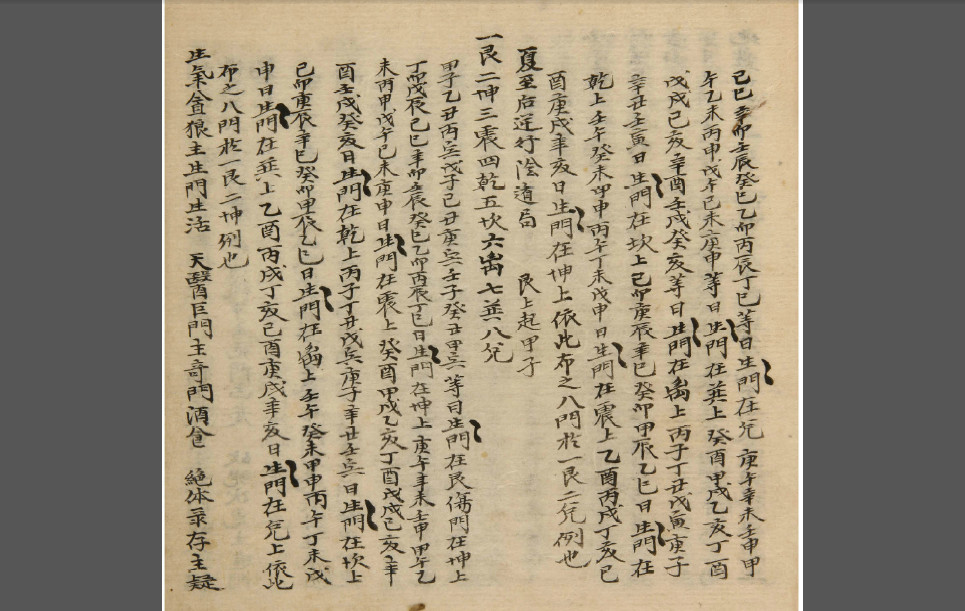 己巳辛卯壬辰癸巳乙卯丙辰丁巳等日生門在兌庚午辛未壬申甲
午乙未丙申戊午己未庚申等日生門在巽上癸酉甲戌乙亥丁酉
戊戌己亥辛酉壬戌癸亥等日生門在离上丙子丁丑戊寅庚子
辛丑壬寅日生門在坎上己卯庚辰辛巳癸卯甲辰乙巳日生門在
乾上壬午癸未甲申丙午丁未戊申日生門在震上乙酉丙戌丁亥己
酉庚戌辛亥日生門在坤上依此布之八門於一艮二兌例也
夏至后逆行陰遁局 艮上起甲子
一艮二坤三震四乾五坎六离七巽八兌
甲子乙丑丙寅戊子己丑庚寅壬子癸丑甲寅等日生門在艮傷門在坤上
丁卯戊辰己巳辛卯壬辰癸巳乙卯丙辰丁巳日生門在坤上庚午辛未壬申甲午乙
未丙申戊午己未庚申日生門在震上癸酉甲戌乙亥丁酉戊戌己亥辛
酉壬戌癸亥日生門在乾上丙子丁丑戊寅庚子辛丑壬寅日生門在坎上
己卯庚辰辛巳癸卯甲辰乙巳日生門在离上壬午癸未甲申丙午丁未戊
申日生門在巽上乙酉丙戌丁亥己酉庚戌辛亥日生門在兌上依此
布之八門於一艮二坤例也
生氣貪狼主生門生活 天醫巨門主奇門酒食 絕体彔存主疑